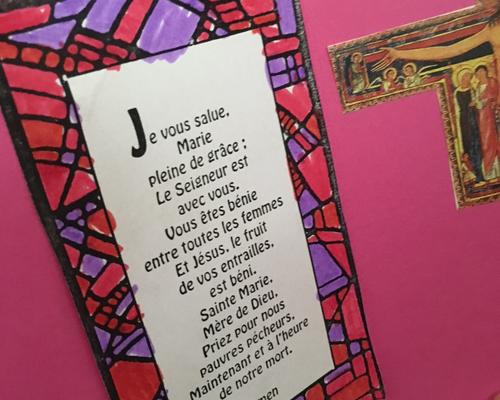 Je vous salue,
Marie
pleine de grâce ;
Le Seigneur est
avec vous.
Vous êtes bénie
entre toutes les femmes
Et Jésus, le fruit
de vos entrailles,
est béni.
Sainte Marie,
Mère de Dieu,
Priez pour nous
pauvres pécheurs,
Maintenant et à l'heure
de notre mort.